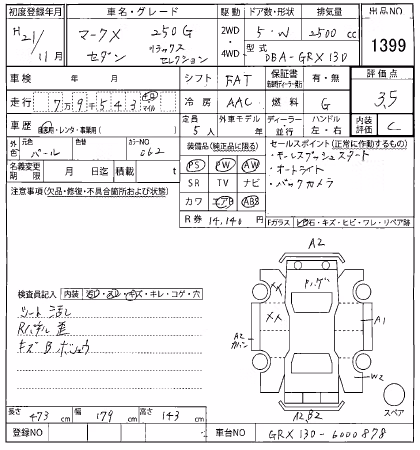 初度登録年月 車名・グレード 駆動 ドア数・形状 排気量 出品NO
H21/11月 マークX セダン 250G リラックスセレクション 2WD・4WD 5・W 2500 cc 1399
型式 DBA-GRX130
車検 年 月 シフト FAT 保証書 有・無 評価点 3.5
走行 7万9千543 km マイル 冷房 AAC 燃料 G
車歴 自家用・レンタ・事業用( ) 定員 5人 外車モデル年 年 ディーラー 並行 ハンドル 左・右 内装評価 C
外色 元色 パール 色替 カラーNO 062
装備品(純正品に限る) セールスポイント(正常に作動するもの)
PS PW AW ・キーレスプッシュスタート
名義変更期限 月 日迄 積載 t SR TV ナビ ・オートライト
カワ エアB ABS ・バックカメラ
注意事項(欠品・修復・不具合箇所および状態)
R券 14,140円 Fガラス ヒ石・キズ・ヒビ・ワレ・リペア跡
A2
検査員記入 内装 キレ・コゲ・穴
シート
Rパネル
キズ B
XX
XX
A2
A1
W2
A2B2
スペア
長さ 473 cm 幅 179 cm 高さ 143 cm
登録NO 車台NO GRX130-6000878